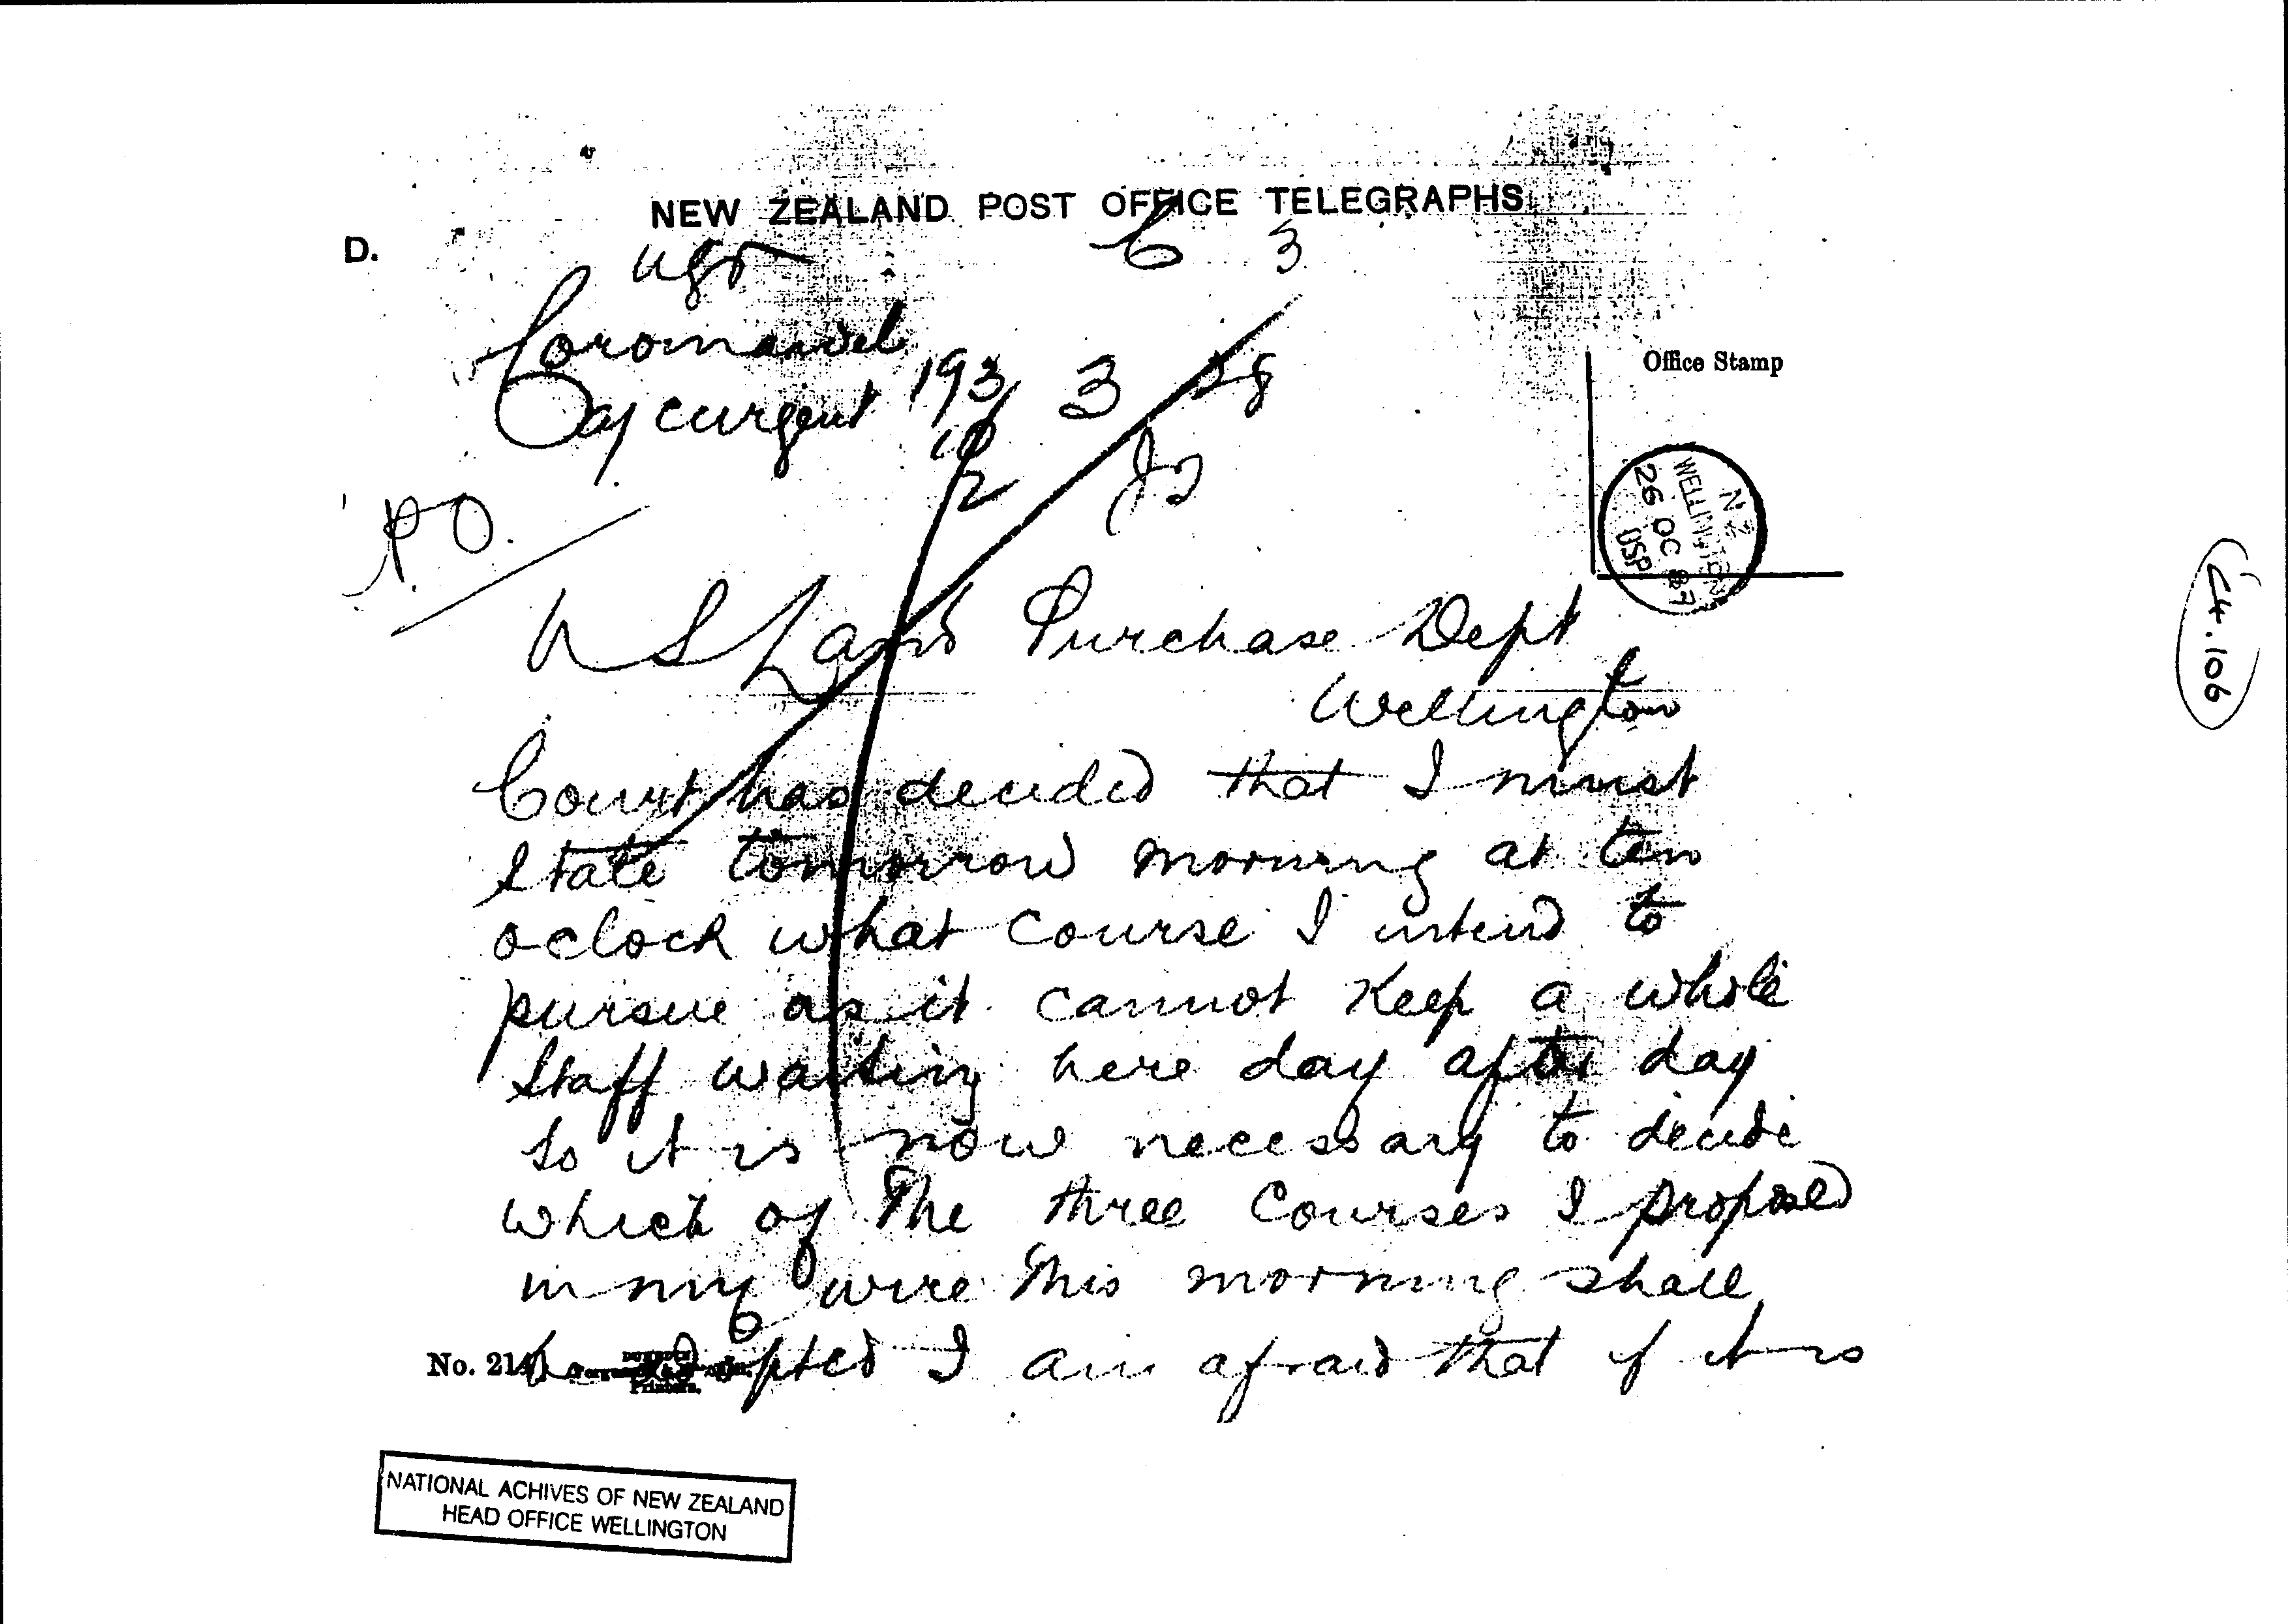 NEW ZEALAND POST OFFICE TELEGRAPHS.
D.
ugt 6 3
Coromandel
urgent 193 3
10
2
P O.
Office Stamp
N.Z.
WELLINGTON
26 OC 87
DSP
24.106
U S Land Purchase Dept
Wellington
Court has decided that I must
State tomorrow morning at ten
oclock what course I intend to
pursue as it cannot Keep a whole
Staff waiting here day after day
So it is now necessary to decide
which of The three Courses I proposed
in my wire This morning shall
be adopted I am afraid that if it is
No. 214
Printers.
NATIONAL ACHIVES OF NEW ZEALAND
HEAD OFFICE WELLINGTON